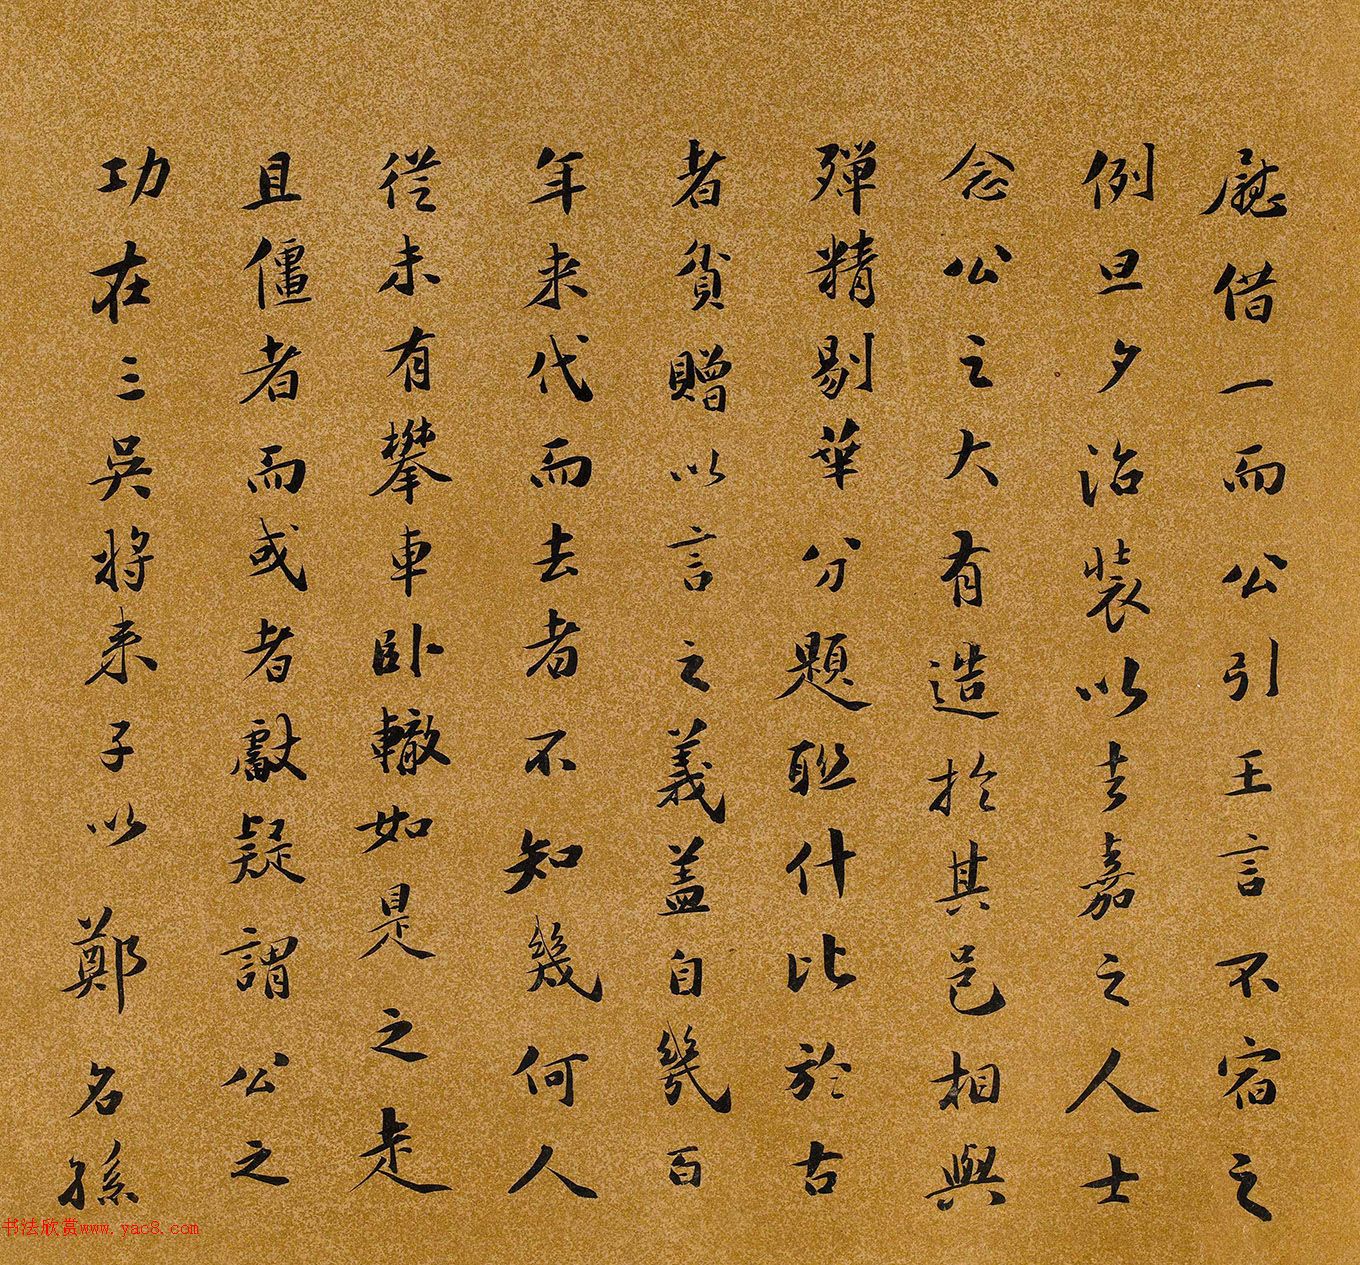 慰借一而公引王言不宿之
例旦夕治装以去嘉之人士
念公之大有造於其邑相與
殫精剔華分題联什比於古
者貧贈以言之義盖自幾百
年来代而去者不知幾何人
從未有攀車卧轍如是之走
且僵者而或者獻疑謂公之
功在三吳将来子以鄭名孫
书法欣赏www.yac8.com